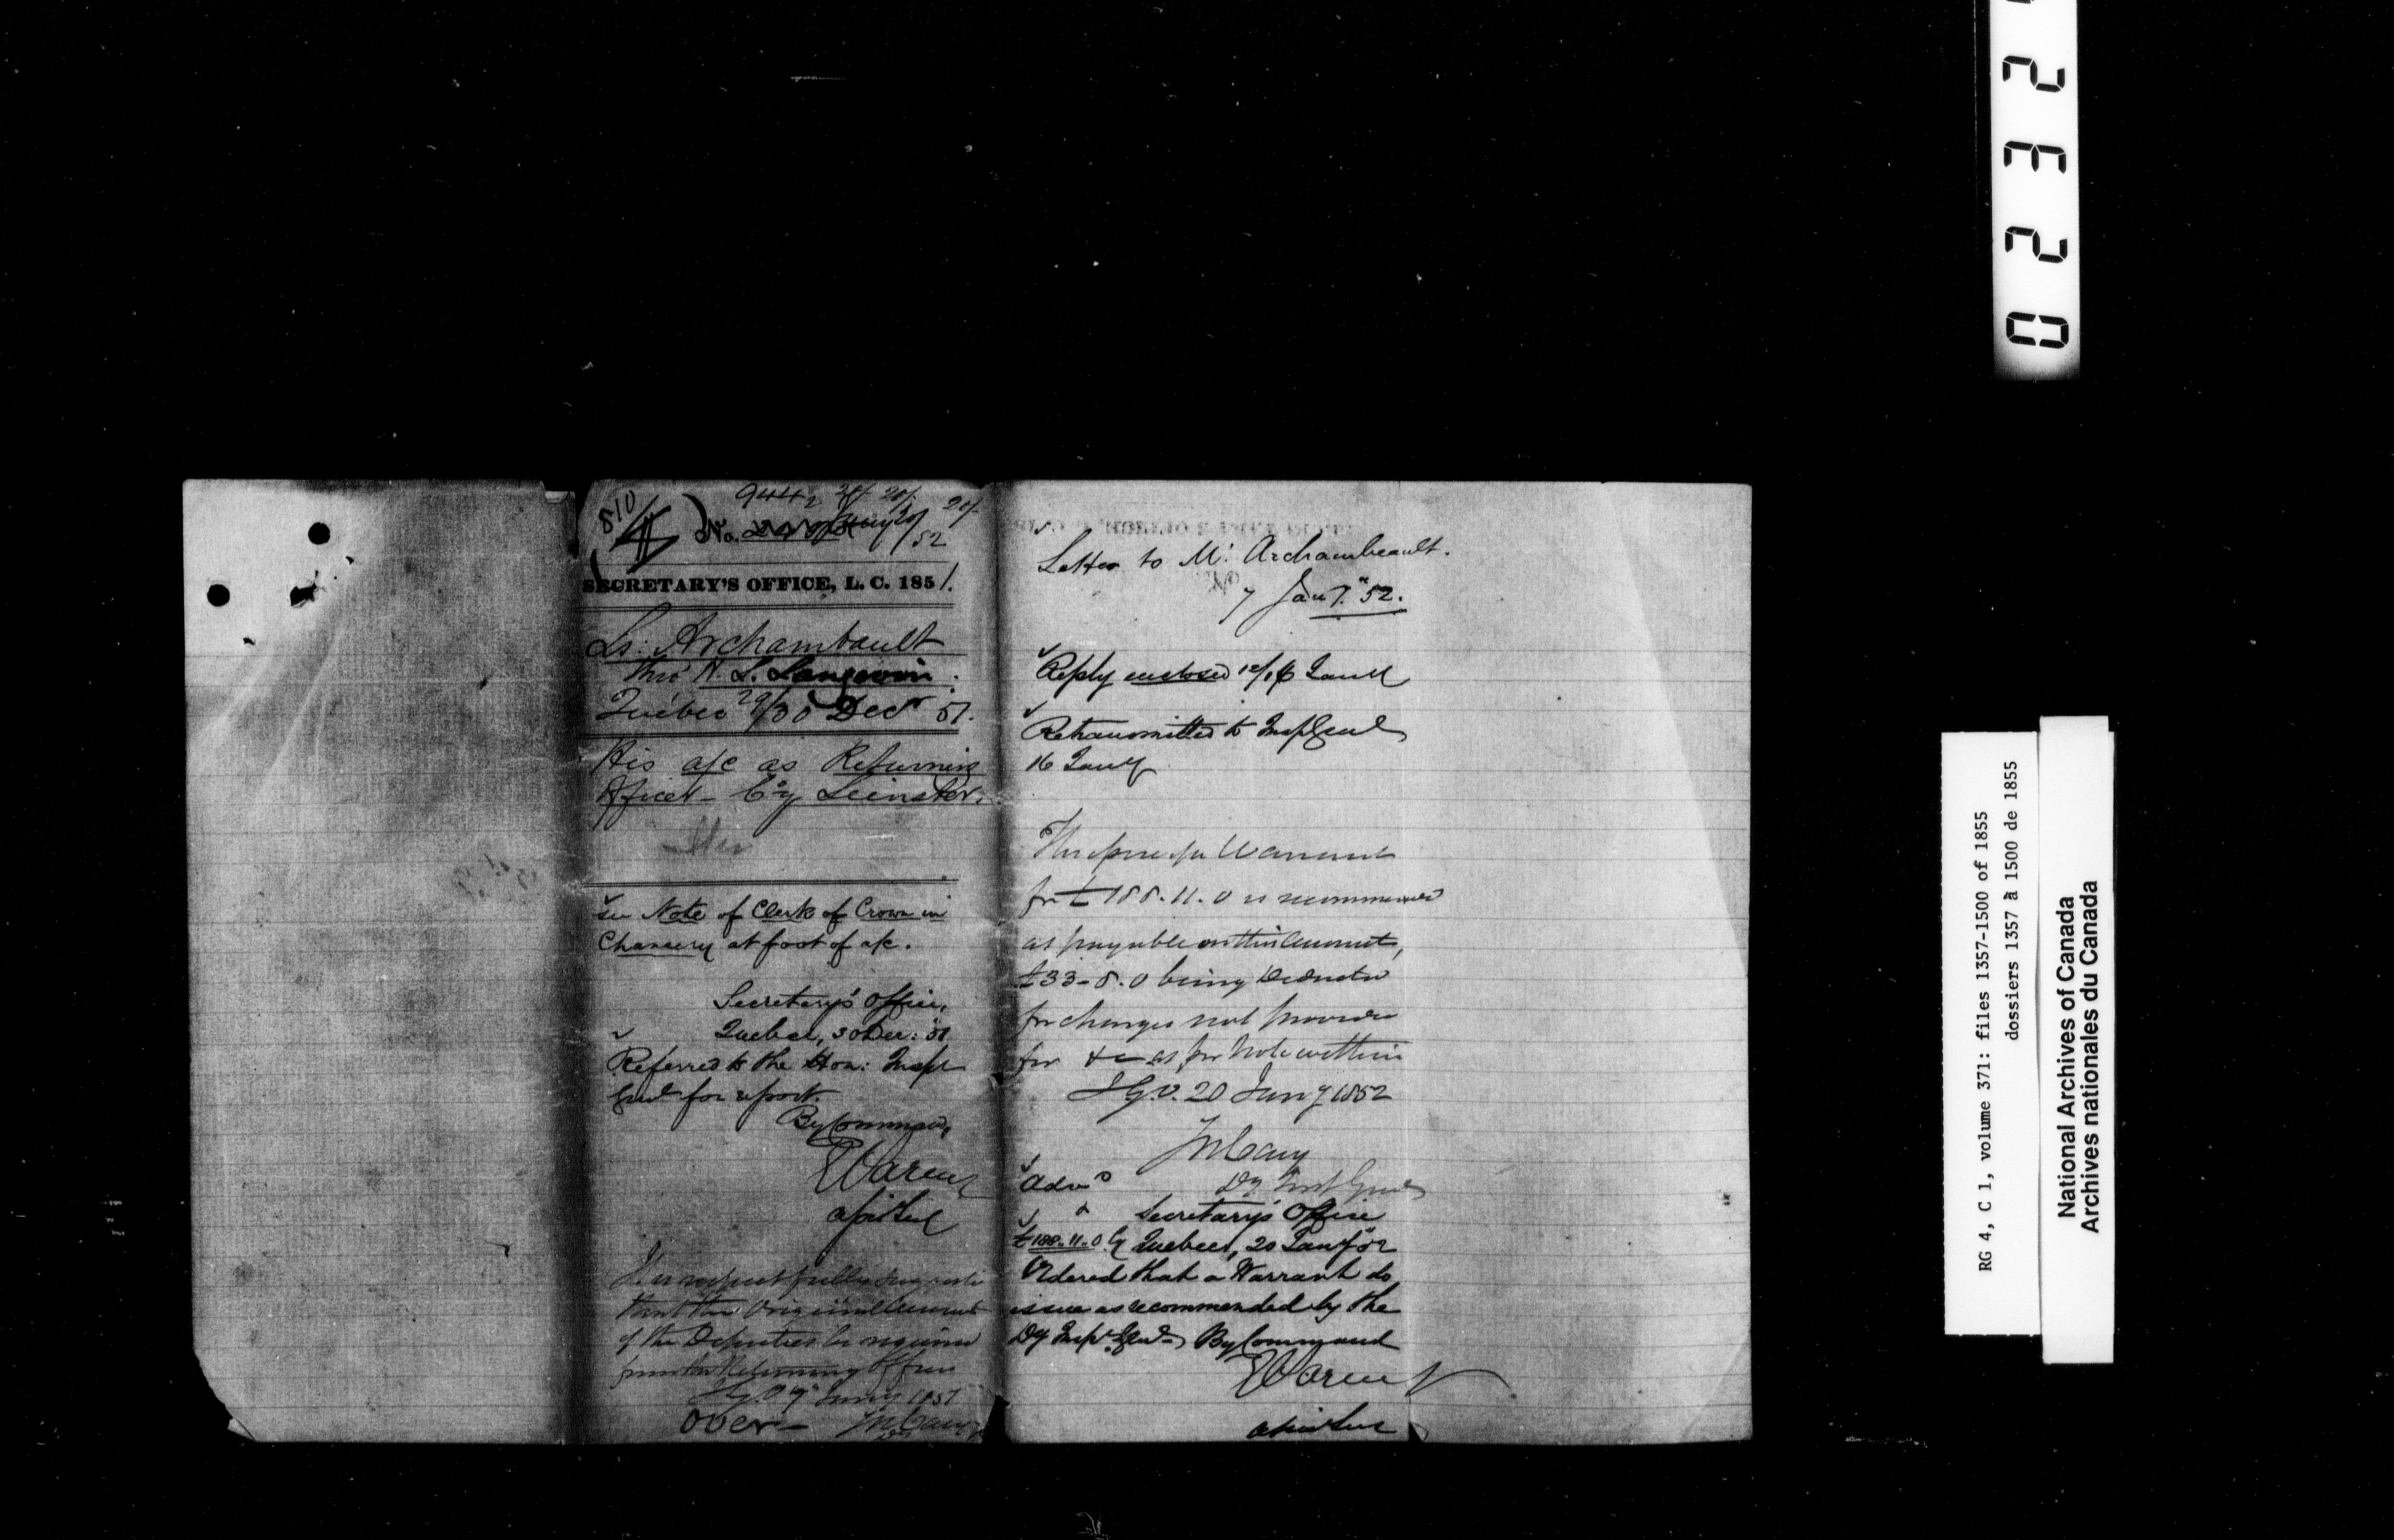 810
9442
No.
52
SECRETARY'S OFFICE, L. C. 1851.
Ls: Archambault
thro' H. L. Langevin.
Québec 29/30 Decr 51.
His a/c as Returning
Officer - Cy Leinster.
See Note of Clerk of Crown in
Chancery at foot of a/c.
Secretary's Office,
Quebec, 30 Dec: 51
Referred to the Hon: Inspr
Genl for report.
By Command,
It is respectfully suggested
that the original account
of the Deputies be required
from the Returning Officer
Jany 1851
over -
Letter to Mr. Archambeault.
7 Jany. 52.
Reply enclosed 12/16 Jany
Retransmitted to Insp Genl
16 Jany
Therefore for Warrant
for £188.11.0 is recommended
as payable on this account,
£33-8.0 being deducted
for charges not provided
for &c as per Note within
I.G.O. 20 Jany 1852
Dy Insp Genl
Secretary's Office
£188.11.0 Cy Quebec, 20 Jany 52
Ordered that a Warrant do
issue as recommended by the
Dy Inspr Genl. By Command
0 2 3 2
RG 4, C 1, volume 371: files 1357-1500 of 1855
dossiers 1357 à 1500 de 1855
National Archives of Canada
Archives nationales du Canada